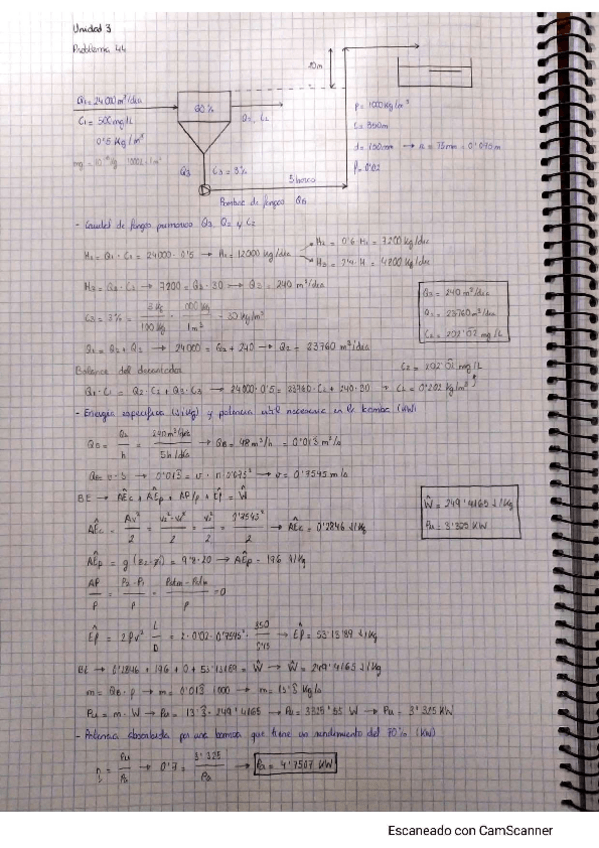 Unidad 3
Problema 44
20m
Q1 = 24000 m³/dia
C1 = 500 mg/L
0'5 Kg/m³
60%
Q2, C2
Q3
C3 = 3%
5 horas
Bombeo de fangos QB
ρ = 1000 kg/m³
L = 350m
d = 150mm → r = 75mm = 0'075m
f = 0'02
- Caudal de fangos primarios Q3, Q2 y C2
M1 = Q1 · C1 = 24000 · 0'5 → M1 = 12000 kg/dia
M3 = 0'6 · M1 = 7200 kg/dia
M2 = 4800 kg/dia
M3 = Q3 · C3 → 7200 = Q3 · 30 → Q3 = 240 m³/dia
C3 = 3% = 3 Kg / 100 Kg · 1000 Kg / 1 m³ = 30 Kg/m³
Q1 = Q2 + Q3 → 24000 = Q2 + 240 → Q2 = 23760 m³/dia
Q3 = 240 m³/dia
Q2 = 23760 m³/dia
C2 = 202'02 mg/L
Balance del decantador
C2 = 202'02 mg/L
Q1 · C1 = Q2 · C2 + Q3 · C3 → 24000 · 0'5 = 23760 · C2 + 240 · 30 → C2 = 0'202 kg/m³
- Energía específica (J/Kg) y potencia útil necesaria en la bomba (KW)
QB = Q3 / h = 240 m³/dia / 5h/dia → QB = 48 m³/h = 0'013 m³/s
QB = v · S → 0'013 = v · π · 0'075² → v = 0'7545 m/s
BE → ΔÊc + ΔÊp + ΔP/ρ + Êf = Ŵ
ΔÊc = Δv² / 2 = v2² - v1² / 2 = v2² / 2 = 0'7545² / 2 → ΔÊc = 0'2846 J/Kg
ΔÊp = g (z2 - z1) = 9'8 · 20 → ΔÊp = 196 J/Kg
ΔP / ρ = P2 - P1 / ρ = Patm - Patm / ρ = 0
Êf = 2fv² L / D = 2 · 0'02 · 0'7545² · 350 / 0'15 → Êf = 53'1319 J/Kg
BE → 0'2846 + 196 + 0 + 53'1319 = Ŵ → Ŵ = 249'4165 J/Kg
Ŵ = 249'4165 J/Kg
Pu = 3'325 KW
m = QB · ρ → m = 0'013 · 1000 → m = 13'3 Kg/s
Pu = m · W → Pu = 13'3 · 249'4165 → Pu = 3325'55 W → Pu = 3'325 KW
- Potencia absorbida por una bomba que tiene un rendimiento del 70% (KW)
η = Pu / Pa → 0'7 = 3'325 / Pa → Pa = 4'7507 KW
Escaneado con CamScanner